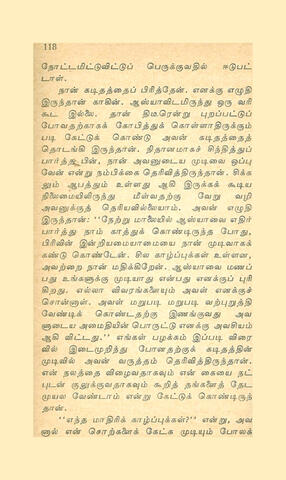 118
நோட்டமிட்டுவிட்டுப் பெருக்குவதில் ஈடுபட்
டாள்.
நான் கடிதத்தைப் பிரித்தேன். எனக்கு எழுதி
இருந்தான் காகின். ஆஸ்யாவிடமிருந்து ஒரு வரி
கூட இல்லை. நான் திடீரென்று புறப்பட்டுப்
போவதற்காகக் கோபித்துக் கொள்ளாதிருக்கும்
படி கேட்டுக் கொண்டு அவன் கடிதத்தைத்
தொடங்கி இருந்தான். நிதானமாகச் சிந்தித்துப்
பார்த்தபின், நான் அவனுடைய முடிவை ஒப்பு
வேன் என்று நம்பிக்கை தெரிவித்திருந்தான். சிக்க
லும் ஆபத்தும் உள்ளது ஆகி இருக்கக் கூடிய
நிலைமையிலிருந்து மீள்வதற்கு வேறு வழி
அவனுக்குத் தெரியவில்லையாம். அவன் எழுதி
இருந்தான்: "நேற்று மாலையில் ஆஸ்யாவை எதிர்
பார்த்து நாம் காத்துக் கொண்டிருந்த போது,
பிரிவின் இன்றியமையாமையை நான் முடிவாகக்
கண்டு கொண்டேன். சில காழ்ப்புகள் உள்ளன,
அவற்றை நான் மதிக்கிறேன். ஆஸ்யாவை மணப்
பது உங்களுக்கு முடியாது என்பது எனக்குப் புரி
கிறது. எல்லா விவரங்களையும் அவள் எனக்குச்
சொன்னாள். அவள் மறுபடி மறுபடி வற்புறுத்தி
வேண்டிக் கொண்டதற்கு இணங்குவது அவ
ளுடைய அமைதியின் பொருட்டு எனக்கு அவசியம்
ஆகி விட்டது." எங்கள் பழக்கம் இப்படி விரை
வில் இடைமுறிந்து போனதற்குக் கடிதத்தின்
முடிவில் அவன் வருத்தம் தெரிவித்திருந்தான்.
என் நலத்தை விழைவதாகவும் என் கையை நட்
புடன் குலுக்குவதாகவும் கூறித் தங்களைத் தேட
முயல வேண்டாம் என்று கேட்டுக் கொண்டிருந்
தான்.
"எந்த மாதிரிக் காழ்ப்புகள்?" என்று, அவ
னால் என் சொற்களைக் கேட்க முடியும் போலக்